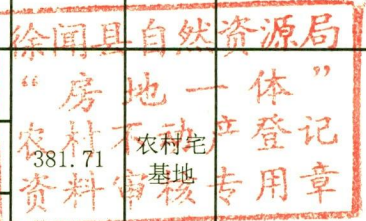 徐闻县自然资源局
“房地一体”
农村不动产登记
资料审核专用章
381.71
农村宅
基地